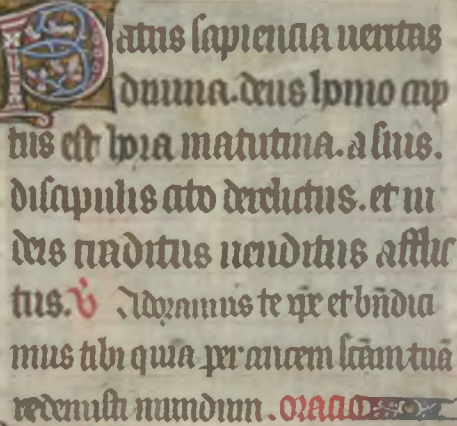 Patris sapiencia ueritas
diuina. deus homo cap
tus est hora matutina. a suis.
discipulis cito derelictus. et iu
deis traditus uenditus afflic
tus. v̄ Adoramus te xp̄e et bn̄dici
mus tibi quia per crucem sc̄am tuā
redemisti mundum. oracio.